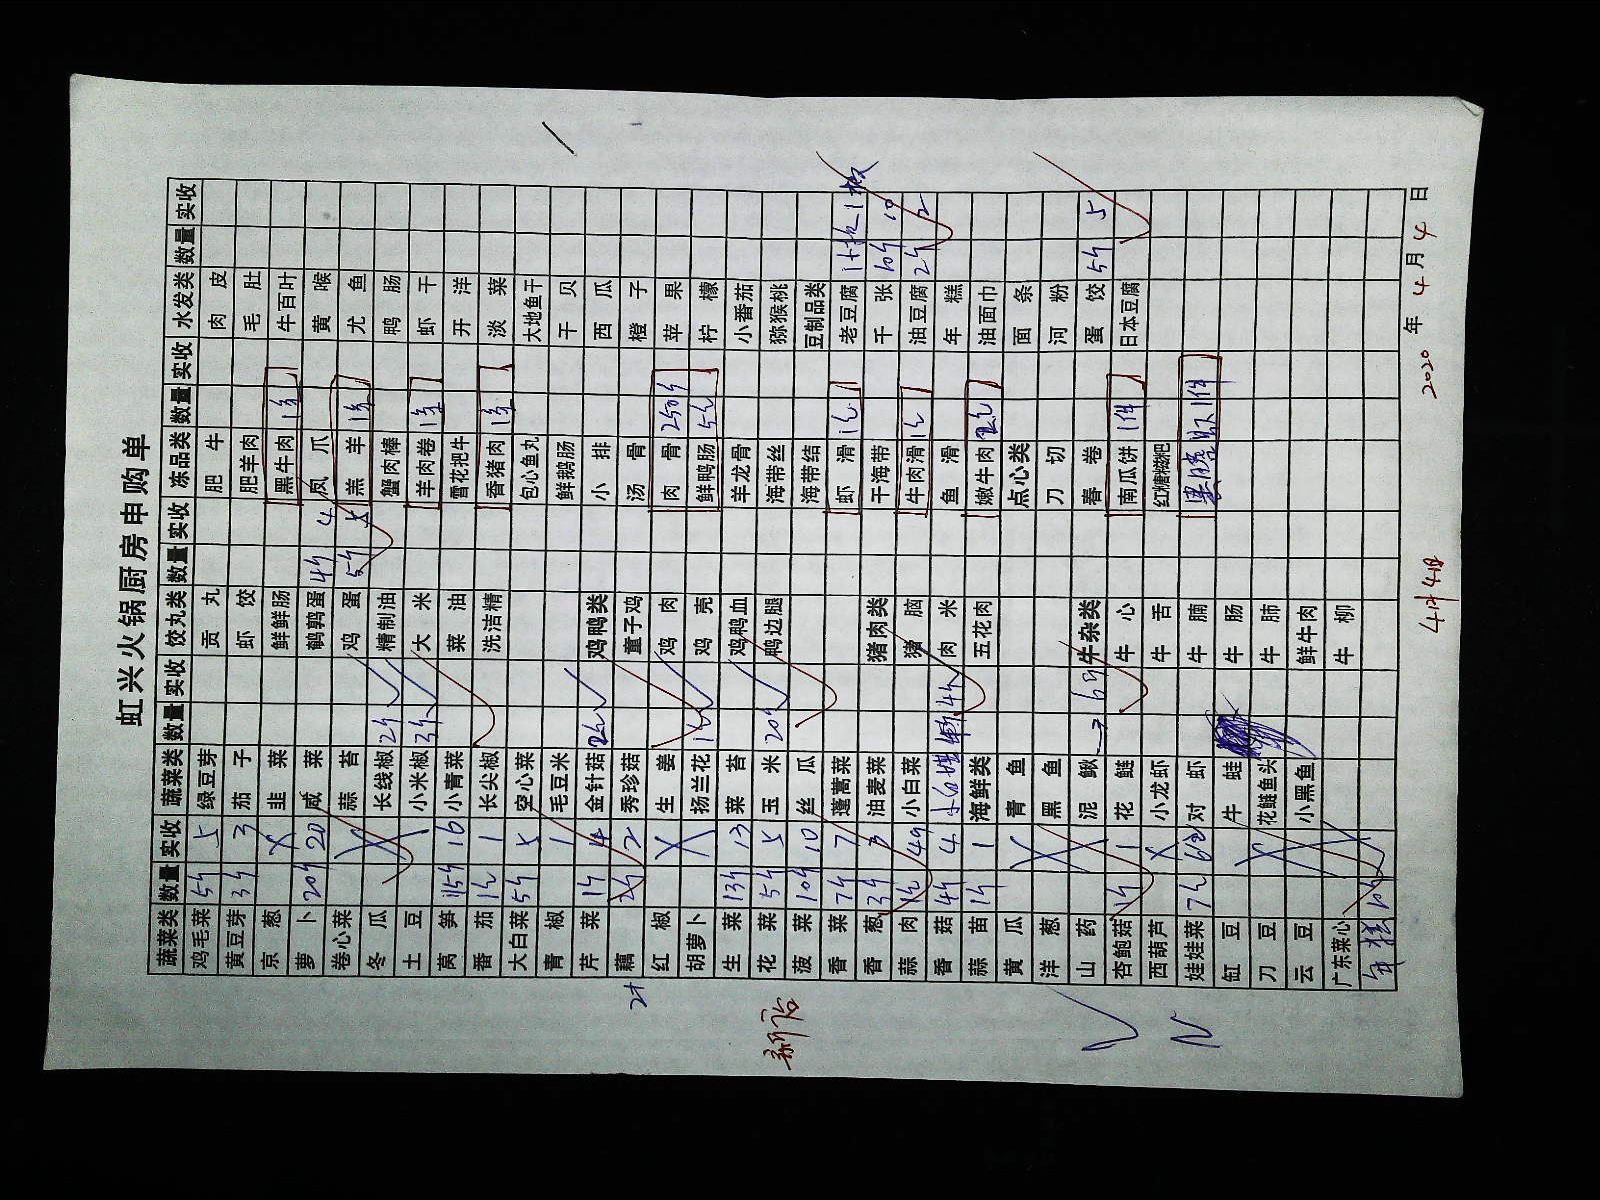 虹兴火锅厨房申购单
蔬菜类 数量 实收 蔬菜类 数量 实收 饺丸类 数量 实收 冻品类 数量 实收 水发类 数量 实收
鸡毛菜 5斤 5 绿豆芽 贡丸 肥牛 肉皮
黄豆芽 3斤 3 茄子 虾饺 肥羊肉 毛肚
京葱 韭菜 鲜鲜肠 黑牛肉 牛百叶
萝卜 20斤 20 咸菜 鹌鹑蛋 4斤 4 凤爪 黄喉
卷心菜 蒜苔 鸡蛋 5斤 5 羔羊 尤鱼
冬瓜 长线椒 2斤 精制油 蟹肉棒 鸭肠
土豆 小米椒 3斤 大米 羊肉卷 虾干
莴笋 15斤 16 小青菜 菜油 雪花把牛 开洋
番茄 1 长尖椒 洗洁精 香猪肉 淡菜
大白菜 5斤 5 空心菜 包心鱼丸 大地鱼干
青椒 1 毛豆米 鲜鹅肠 干贝
芹菜 1斤 4 金针菇 鸡鸭类 小排 西瓜
藕 2斤 2 秀珍菇 童子鸡 汤骨 橙子
红椒 生姜 鸡肉 肉骨 250斤 苹果
胡萝卜 扬兰花 鸡壳 鲜鸭肠 柠檬
生菜 13斤 13 菜苔 鸡鸭血 羊龙骨 小番茄
花菜 5斤 5 玉米 20斤 鸭边腿 海带丝 猕猴桃
菠菜 10斤 10 丝瓜 海带结 豆制品类
香菜 7斤 7 蓬蒿菜 虾滑 老豆腐 1板
香葱 3斤 3 油麦菜 猪肉类 干海带 千张 10斤 10
蒜肉 49 小白菜 猪脑 牛肉滑 油豆腐 2斤 2
香菇 4斤 4 肉米 鱼滑 年糕
蒜苗 1斤 1 海鲜类 五花肉 嫩牛肉 油面巾
黄瓜 青鱼 点心类 面条
洋葱 黑鱼 刀切 河粉
山药 泥鳅 牛杂类 春卷 蛋饺 5斤 5
杏鲍菇 1斤 1 花鲢 牛心 南瓜饼 1件 日本豆腐
西葫芦 小龙虾 牛舌 红糖糍粑
娃娃菜 对虾 牛腩 1件
缸豆 牛蛙 牛肠
刀豆 花鲢鱼头 牛肺
云豆 小黑鱼 鲜牛肉
广东菜心 牛柳
年糕
2020年4月4日